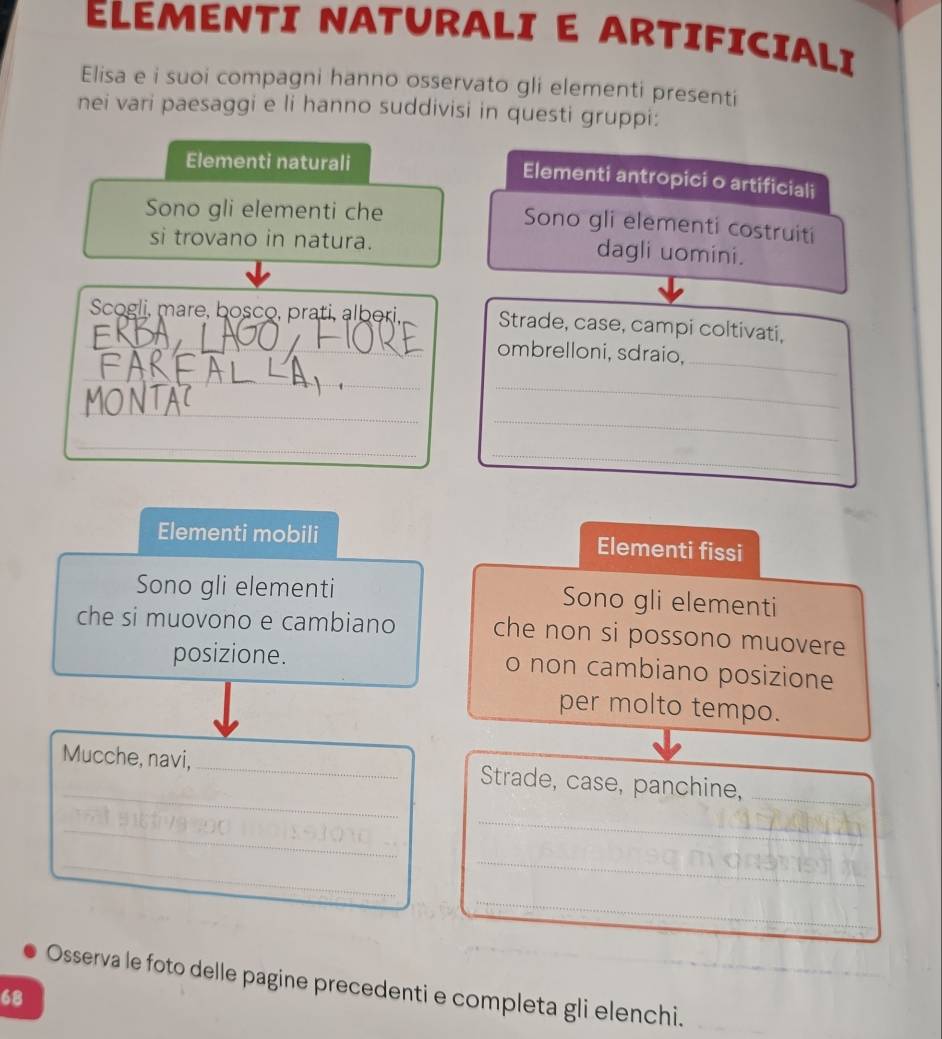 ELEMENTI NATURALI E ARTIFICIALI
Elisa e i suoi compagni hanno osservato gli elementi presenti
nei vari paesaggi e li hanno suddivisi in questi gruppi:
Elementi naturali
Sono gli elementi che
si trovano in natura.
Scogli, mare, bosco, prati, alberi,
ERBA, LAGO, FIORE
FARFALLA,
MONTA
Elementi antropici o artificiali
Sono gli elementi costruiti
dagli uomini.
Strade, case, campi coltivati,
ombrelloni, sdraio,
Elementi mobili
Sono gli elementi
che si muovono e cambiano
posizione.
Mucche, navi,
Elementi fissi
Sono gli elementi
che non si possono muovere
o non cambiano posizione
per molto tempo.
Strade, case, panchine,
Osserva le foto delle pagine precedenti e completa gli elenchi.
68